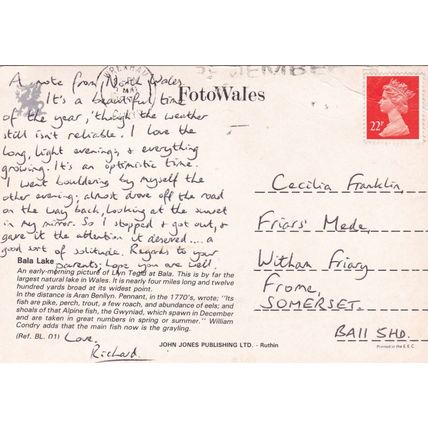 WREXHAM
MAY
FotoWales
22P
A note from North Wales
It's a beautiful time
of the year, 'though the weather
still isn't reliable. I love the
long, light evenings, & everything
growing. It's an optimistic time.
I went bouldering by myself the
other evening; almost drove off the road
on the way back, looking at the sunset
in my mirror. So I stopped & got out, &
gave it the attention it deserved.... a
good sort of solitude. Regards to your
parents; hope you are well.
Love,
Richard
Cecilia Franklin,
Friars' Mede,
Witham Friary
Frome,
SOMERSET.
BA11 5HD.
Bala Lake
An early-morning picture of Llyn Tegid at Bala. This is by far the
largest natural lake in Wales. It is nearly four miles long and twelve
hundred yards broad at its widest point.
In the distance is Aran Benllyn. Pennant, in the 1770's, wrote; "Its
fish are pike, perch, trout, a few roach, and abundance of eels; and
shoals of that Alpine fish, the Gwyniad, which spawn in December
and are taken in great numbers in spring or summer." William
Condry adds that the main fish now is the grayling.
(Ref. BL. 01)
JOHN JONES PUBLISHING LTD. - Ruthin
Printed in the E.E.C.